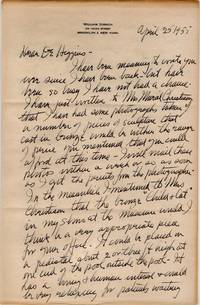 WILLIAM ZORACH
BROOKLYN 2, NEW YORK
April 25 1955
Dear Dr Higgins -
I have been meaning to write you
ever since I have been back - but have
been so busy I have not had a chance.
I have just written to Mrs
that I have had some photographs taken of
a number of pieces of sculpture that
cast in bronze would be within the range
of price you mentioned that you could
afford at this time - I will mail these
photos within a week or so as soon
as I get the prints from the photographer.
In the meanwhile I mentioned to Mrs
Christian that the bronze
in my show at the Museum would I
think be a very appropriate piece
for your office. It could be placed on
a pedestal about 20 or high at
one end of the pool, outside the pool - It
has a human interest & would
be very for patients waiting